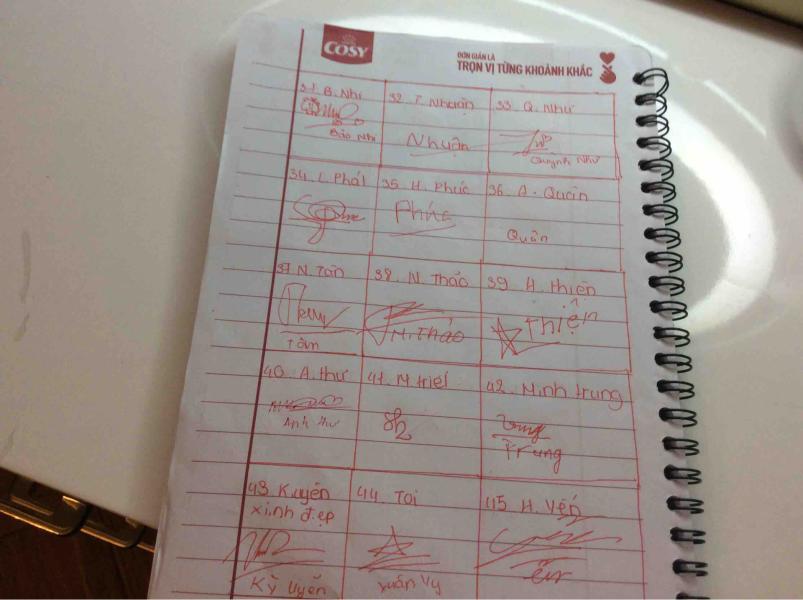 COSY
ĐƠN GIẢN LÀ
TRỌN VỊ TỪNG KHOẢNH KHẮC
31 B. Nhi
Bảo Nhi
32 T. Nhuận
Nhuận
33 Q. Như
Quỳnh Như
34 L. Phát
35 H. Phúc
Phúc
36 A. Quân
Quân
37 N. Tân
Tâm
38 N. Thảo
N. Thảo
39 A thiện
Thiện
40 A. thư
Anh thư
41 M triết
42 Minh trung
Trung
43 K uyên
xinh đẹp
Kỳ Uyên
44 Tôi
xuân Vy
45 H. Yến